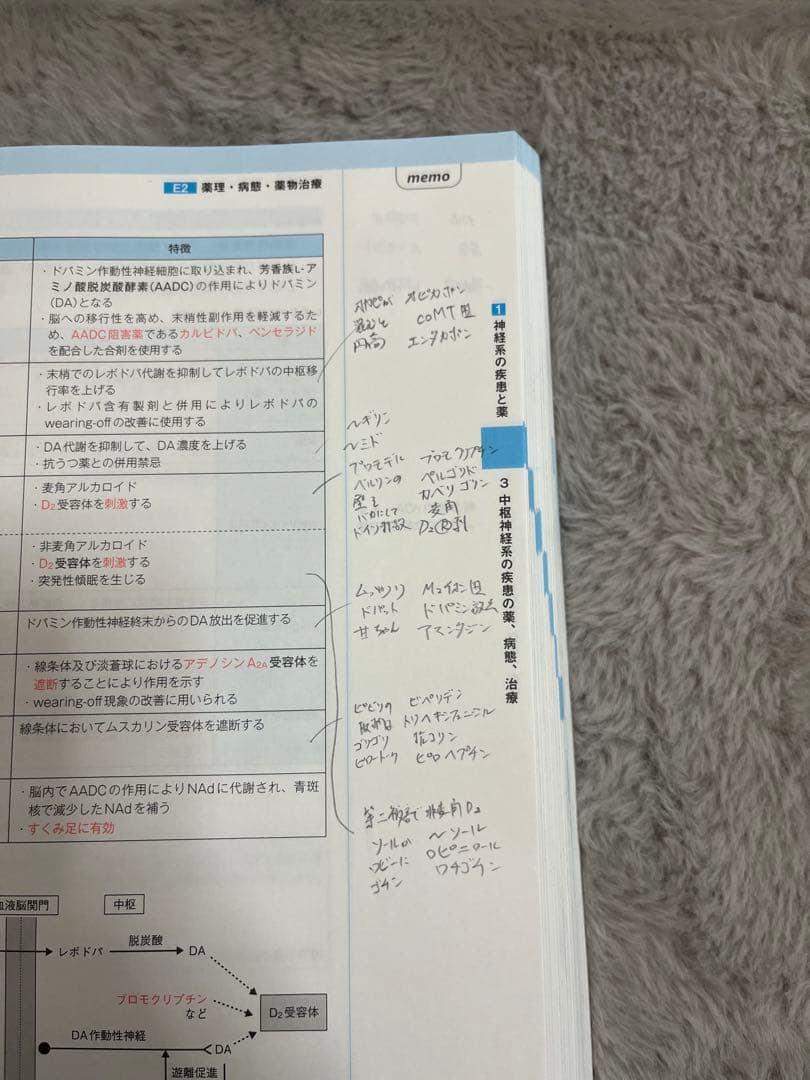 E2 薬理・病態・薬物治療
memo
特徴
・ドパミン作動性神経細胞に取り込まれ、芳香族L-ア
ミノ酸脱炭酸酵素(AADC)の作用によりドパミン
(DA)となる
・脳への移行性を高め、末梢性副作用を軽減するた
め、AADC阻害薬であるカルビドパ、ベンセラジド
を配合した合剤を使用する
・末梢でのレボドパ代謝を抑制してレボドパの中枢移
行率を上げる
・レボドパ含有製剤と併用によりレボドパの
wearing-offの改善に使用する
・DA代謝を抑制して、DA濃度を上げる
・抗うつ薬との併用禁忌
・麦角アルカロイド
・D2受容体を刺激する
・非麦角アルカロイド
・D2受容体を刺激する
・突発性傾眠を生じる
ドパミン作動性神経終末からのDA放出を促進する
・線条体及び淡蒼球におけるアデノシンA2A受容体を
遮断することにより作用を示す
・wearing-off現象の改善に用いられる
線条体においてムスカリン受容体を遮断する
・脳内でAADCの作用によりNAdに代謝され、青斑
核で減少したNAdを補う
・すくみ足に有効
オピカポン
COMT阻
エンタカポン
〜ギリン
〜ミド
ブロモデル ブロモクリプチン
ベルリンの ペルゴリド
壁を カベリゴリン
バカにして 麦角
ドイツ D2Ⓡ刺
ムッツリ
ドパット ドパミン
甘ちゃん アマンタジン
ビペリデン
トリヘキシフェニジル
ゴリゴリ 抗コリン
ピロヘプチン
非麦角D2
ソールの 〜ソール
ロビーに ロピニロール
ゴチン ロチゴチン
1 神経系の疾患と薬
3 中枢神経系の疾患の薬、病態、治療
血液脳関門
中枢
レボドパ
脱炭酸
DA
ブロモクリプチン
など
D2受容体
DA作動性神経
DA
遊離促進